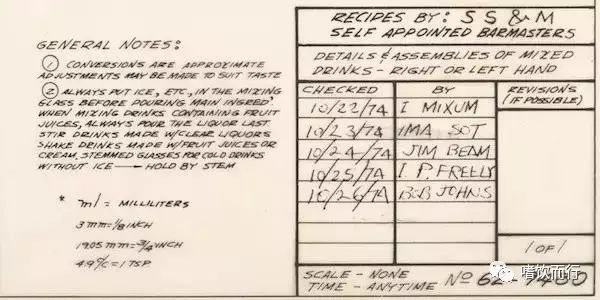 GENERAL NOTES:
① CONVERSIONS ARE APPROXIMATE
ADJUSTMENTS MAY BE MADE TO SUIT TASTE
② ALWAYS PUT ICE, ETC., IN THE MIXING
GLASS BEFORE POURING MAIN INGRED'
WHEN MIXING DRINKS CONTAINING FRUIT
JUICES, ALWAYS POUR THE LIQUOR LAST
STIR DRINKS MADE W/CLEAR LIQUORS
SHAKE DRINKS MADE W/FRUIT JUICES OR
CREAM, STEMMED GLASSES FOR COLD DRINKS
WITHOUT ICE — HOLD BY STEM
* ml = MILLILITERS
3 mm = 1/8 INCH
19.05 mm = 3/4 INCH
4.9 = 1 TSP
RECIPES BY: S S & M
SELF APPOINTED BARMASTERS
DETAILS & ASSEMBLIES OF MIXED
DRINKS - RIGHT OR LEFT HAND
CHECKED BY REVISIONS
(IF POSSIBLE)
10/22/74 I MIXUM
10/23/74 IMA SOT
10/24/74 JIM BEAM
10/25/74 I. P. FREELY
10/26/74 BOB JOHNS
1 OF 1
SCALE - NONE
TIME - ANYTIME
No 62-7400
嗜饮而行